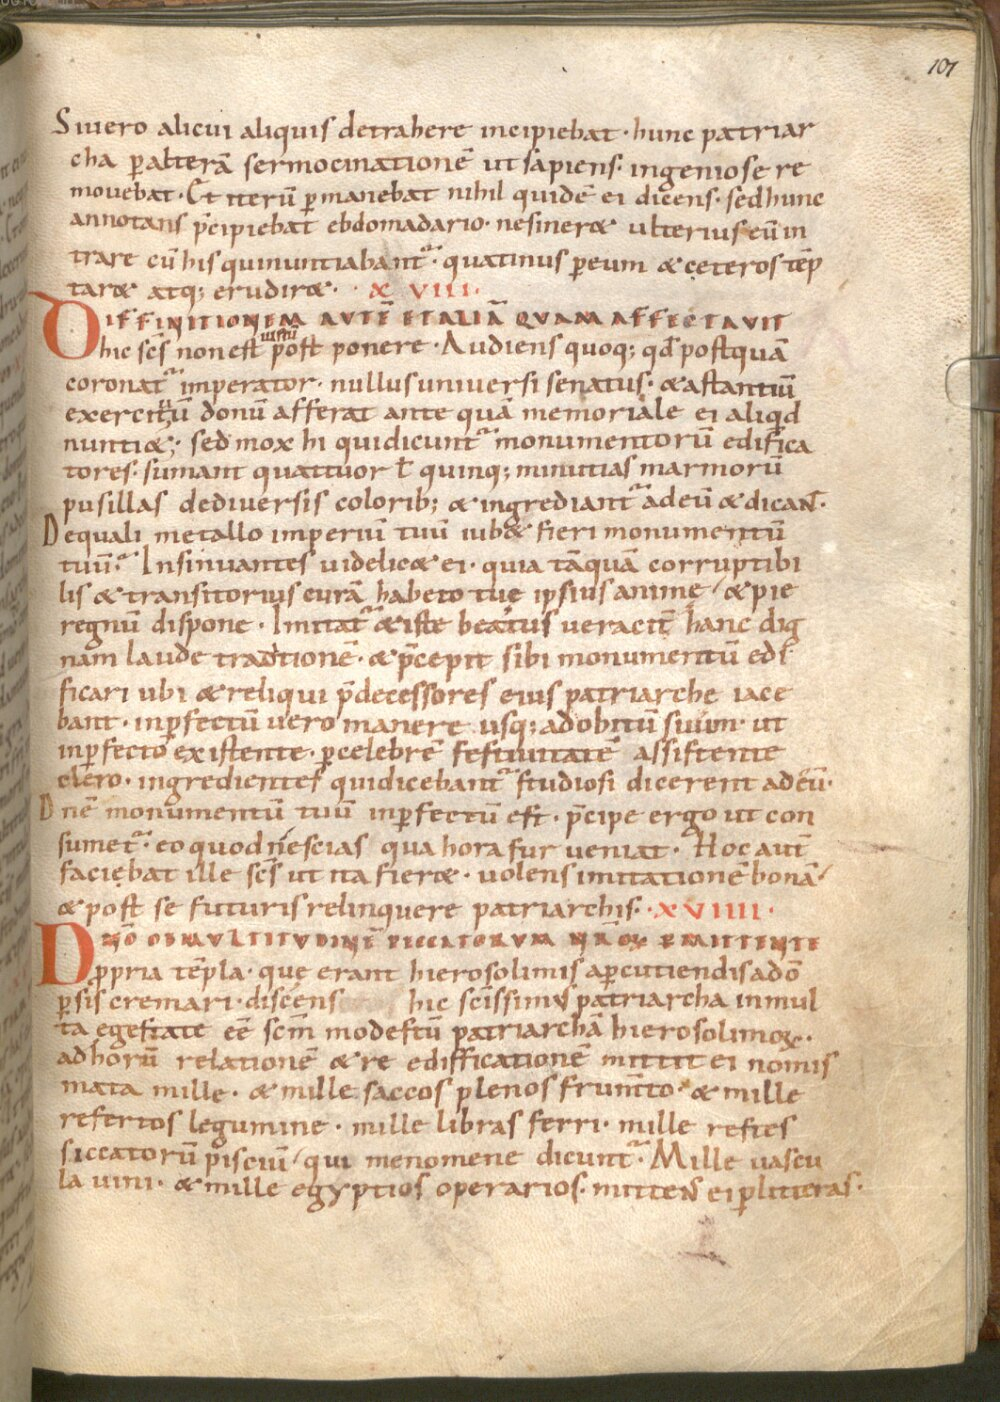 107
Siuero alicui aliquis detrahere incipiebat · hunc patriar
cha ꝑ alterā sermocinationē ut sapiens · ingeniose re
mouebat · Et iterū ꝑmanebat nihil quidē ei dicens · sed hunc
annotans p̄cipiebat ebdomadario · ne sineret ulterius eūin
trare cū his qui nuntiabant᷑ · quatinus ꝑ eum & ceteros tēp
taret atq; erudiret · XVIII ·
DIFFINITIONEM AUTĒ ET ALIĀ QUAM AFFECTAUIT
hic scs̄ non est iustū post ponere · Audiens quoq; qđ postquā
coronat᷑ imperator · nullus uniuersi senatus · & astantiū
exercituū donū afferat ante quā memoriale ei aliqđ
nuntiet; sed mox hi qui dicunt᷑ monumentorū edifica
tores · sumant quattuor ł quinq; minutias marmorū
pusillas de diuersis colorib; & ingrediant᷑ ad eū & dicant ·
De quali metallo imperiū tuū iubet fieri monumentū
tuū · Insinuantes uidelicet ei · quia tāquā corruptibi
lis & transitorius curā habeto tuę ipsius anime / & pie
regnū dispone · Imitat᷑ & iste beatus ueracit̄ hanc dig
nam laude traditionē · & p̄cepit sibi monumentū edi
ficari ubi & reliqui p̄decessores eius patriarche iace
bant · inꝑfectū uero manere usq; ad obitū suum · ut
inꝑfecto existente · ꝑ celebrē festiuitatē assistente
clero · ingredientes qui dicebant᷑ studiosi dicerent ad eū ·
Dn̄e monumentū tuū inꝑfectū est · p̄cipe ergo ut con
sumet᷑ · eo quod nescias qua hora fur ueniat · Hoc autē
faciebat ille scs̄ ut ita fieret · uolens imitationē bonā /
& post se futuris relinquere patriarchis · XVIIII ·
DNŌ OB MULTITUDINĒ PECCATORUM NRŌꝜ ꝐMITTENTE
ꝓpria tēpla · quę erant hierosolimis a ꝑcutiendis a dō
ꝑsis cremari · discens hic scissimus patriarcha in mul
ta egestate eē scm̄ modestū patriarchā hierosolimoꝝ ·
ad horū relationē & reedifficationē mittit ei nomis
mata mille · & mille saccos plenos frumto · & mille
refertos legumine · mille libras ferri · mille restes
siccatorū pisciū / qui menomene dicunt᷑ · Mille uascu
la uini · & mille egyptios operarios · mittens ei ꝑ litteras ·